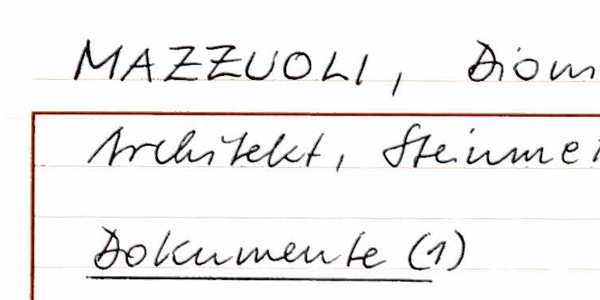 MAZZUOLI, Diom
Architekt, Steinme
Dokumente (1)